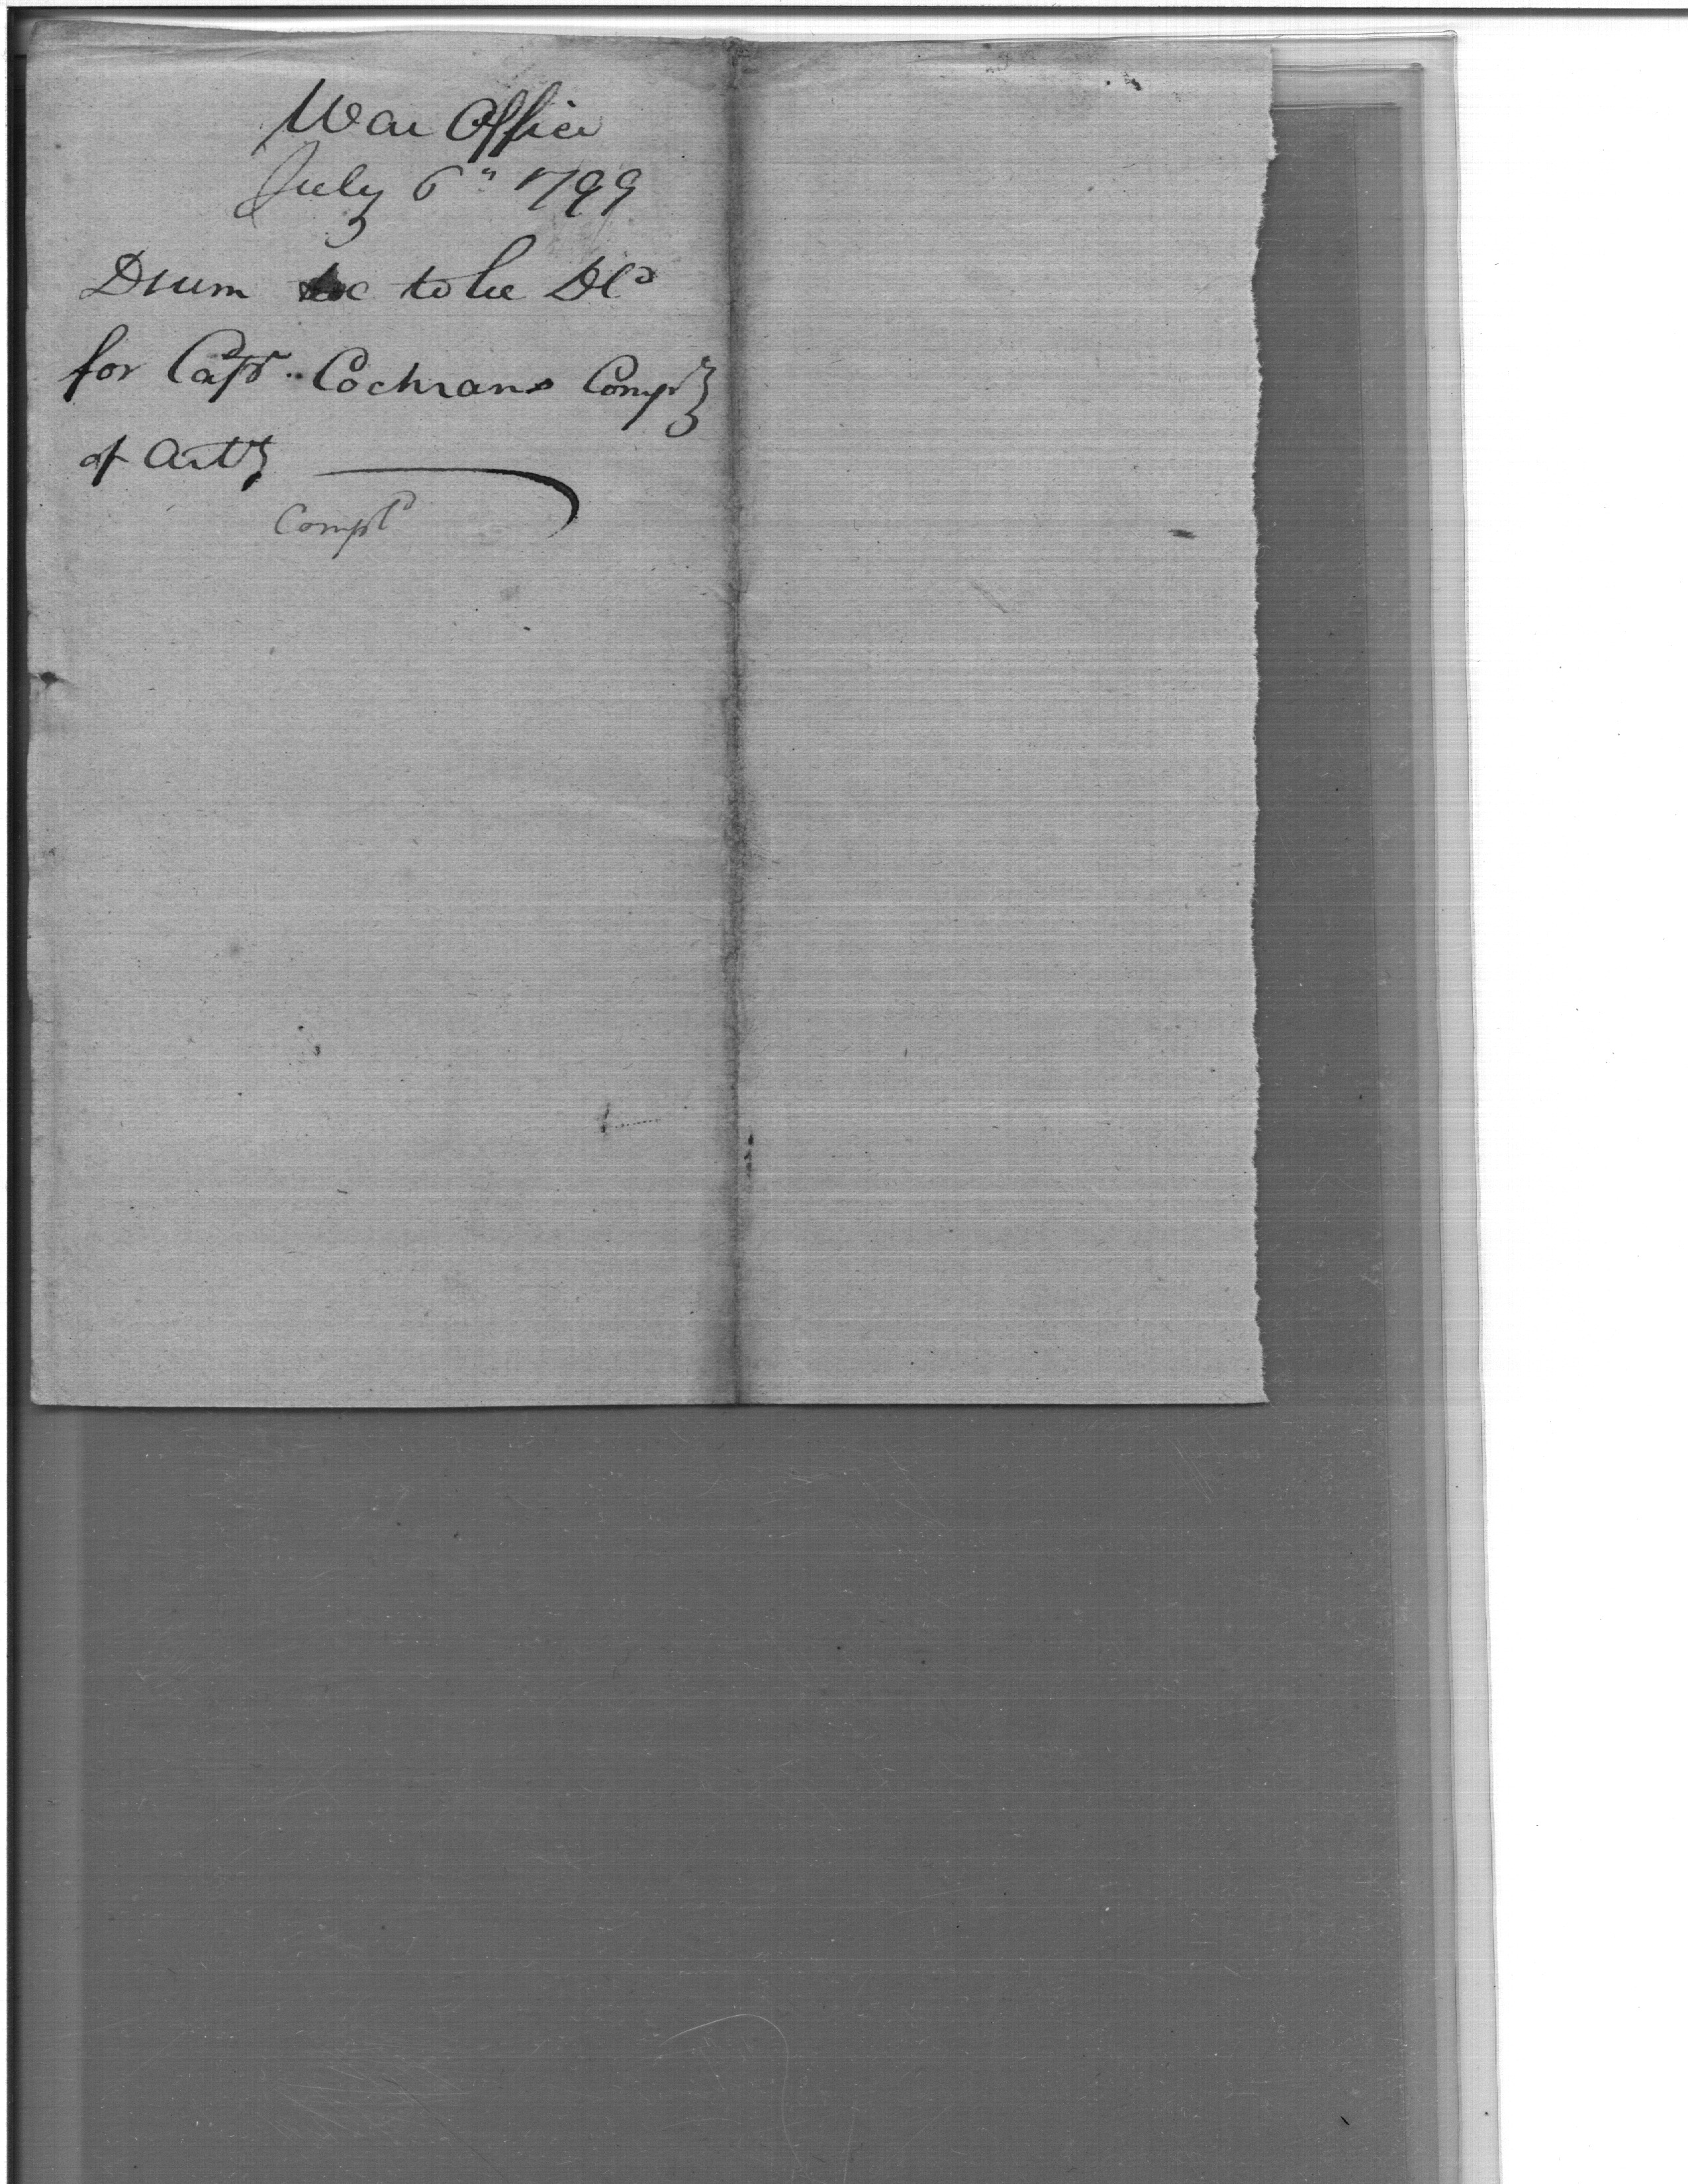 War Office
July 6" 1799
Drum &c to be Dld
for Capt. Cochrans Compy
of Arty
Compd